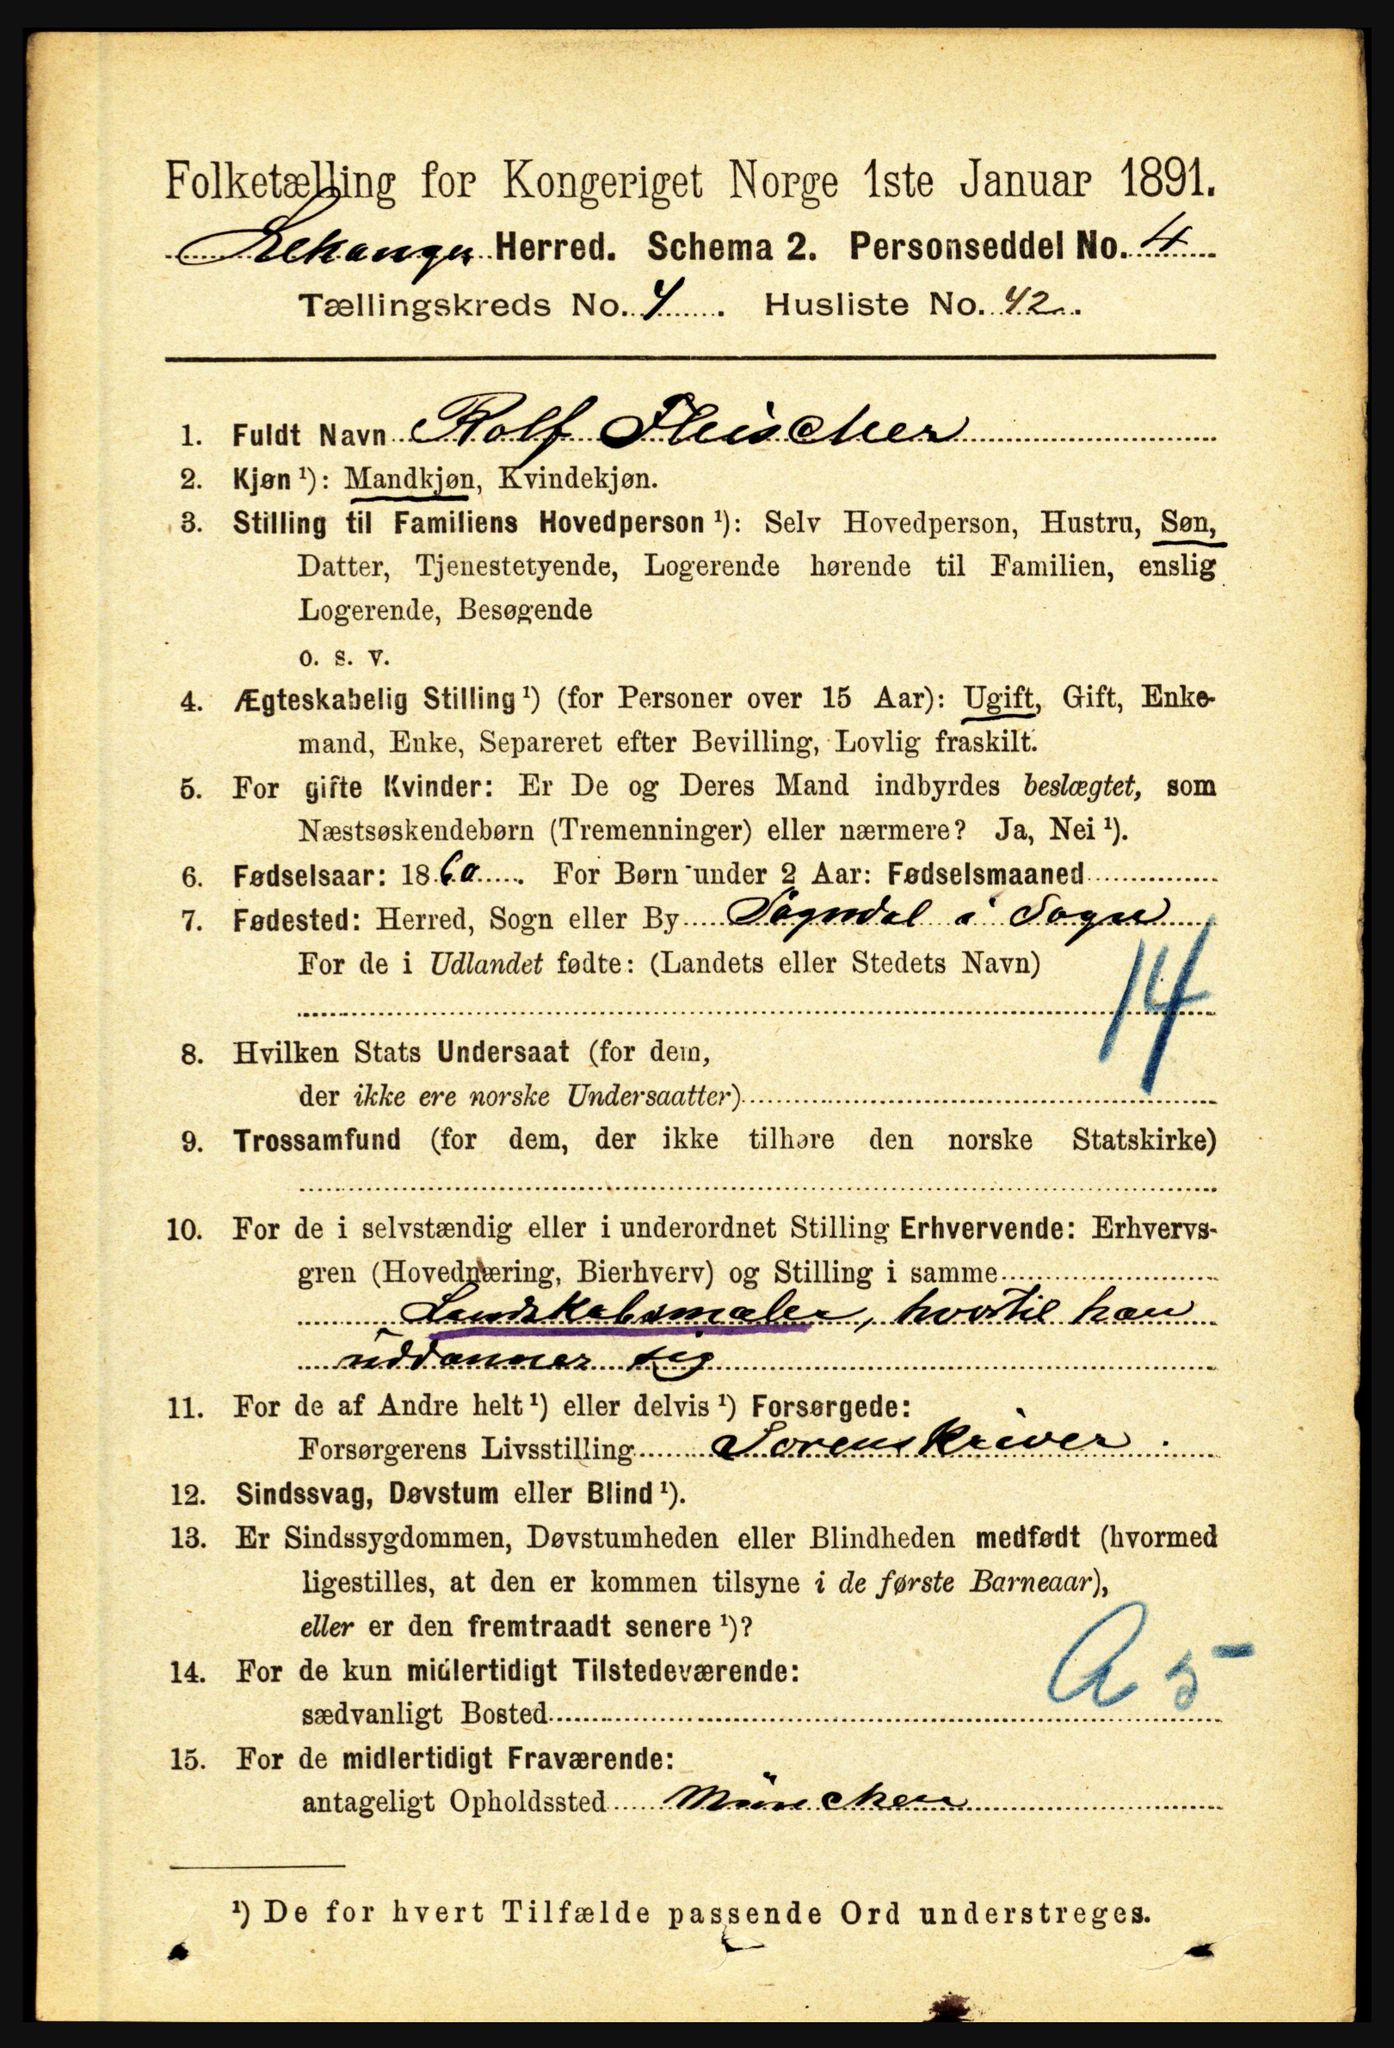 Folketælling for Kongeriget Norge 1ste Januar 1891.
Lekanger Herred. Schema 2. Personseddel No. 4
Tællingskreds No. 4. Husliste No. 42.
1. Fuldt Navn Rolf Fleischer
2. Kjøn ¹): Mandkjøn, Kvindekjøn.
3. Stilling til Familiens Hovedperson ¹): Selv Hovedperson, Hustru, Søn,
Datter, Tjenestetyende, Logerende hørende til Familien, enslig
Logerende, Besøgende
o. s. v.
4. Ægteskabelig Stilling ¹) (for Personer over 15 Aar): Ugift, Gift, Enke-
mand, Enke, Separeret efter Bevilling, Lovlig fraskilt.
5. For gifte Kvinder: Er De og Deres Mand indbyrdes beslægtet, som
Næstsøskendebørn (Tremenninger) eller nærmere? Ja, Nei ¹).
6. Fødselsaar: 1860. For Børn under 2 Aar: Fødselsmaaned
7. Fødested: Herred, Sogn eller By Sogndal i Sogn
For de i Udlandet fødte: (Landets eller Stedets Navn)
14
8. Hvilken Stats Undersaat (for dem,
der ikke ere norske Undersaatter)
9. Trossamfund (for dem, der ikke tilhøre den norske Statskirke)
10. For de i selvstændig eller i underordnet Stilling Erhvervende: Erhvervs-
gren (Hovednæring, Bierhverv) og Stilling i samme
Landskabsmaler, hvortil han
uddanner sig
11. For de af Andre helt ¹) eller delvis ¹) Forsørgede:
Forsørgerens Livsstilling Sorenskriver.
12. Sindssvag, Døvstum eller Blind ¹).
13. Er Sindssygdommen, Døvstumheden eller Blindheden medfødt (hvormed
ligestilles, at den er kommen tilsyne i de første Barneaar),
eller er den fremtraadt senere ¹)?
A 5
14. For de kun midlertidigt Tilstedeværende:
sædvanligt Bosted
15. For de midlertidigt Fraværende:
antageligt Opholdssted München
¹) De for hvert Tilfælde passende Ord understreges.